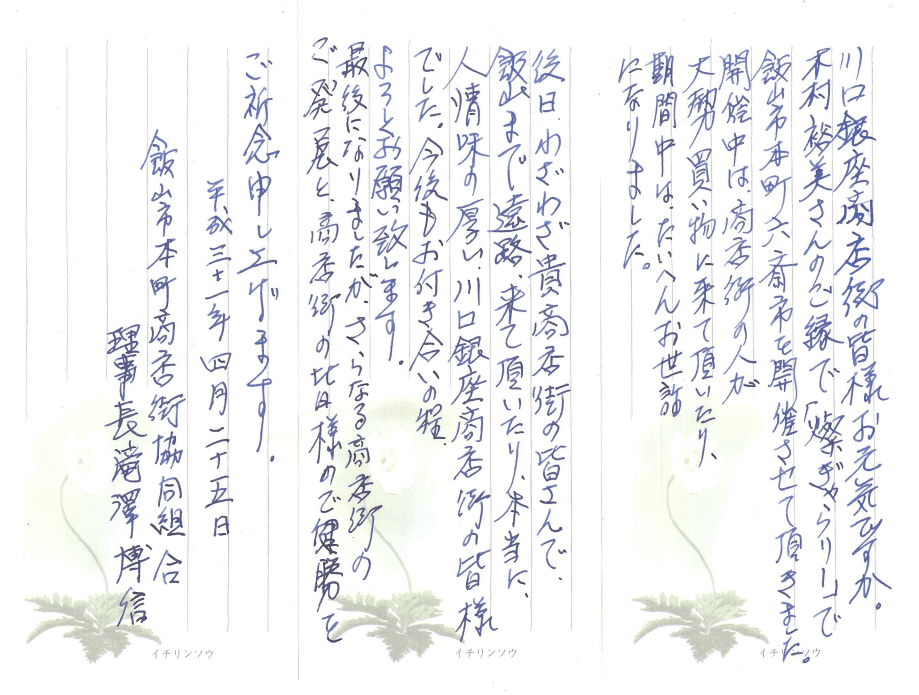 川口銀座商店街の皆様お元気ですか。
木村裕美さんのご縁で「燦ぎゃらりー」で
飯山市本町六斎市を開催させて頂きました。
開催中は、商店街の人が
大勢買い物に来て頂いたり、
期間中は、たいへんお世話
になりました。
後日、わざわざ貴商店街の皆さんで、
飯山まで遠路、来て頂いたり、本当に、
人情味の厚い、川口銀座商店街の皆様
でした。今後もお付き合いの程
よろしくお願い致します。
最後になりましたが、さらなる商店街の
ご発展と、商店街の皆様のご健勝を
ご祈念申し上げます。
平成三十一年四月二十五日
飯山市本町商店街協同組合
理事長滝澤博信
イチリンソウ
イチリンソウ
イチリンソウ